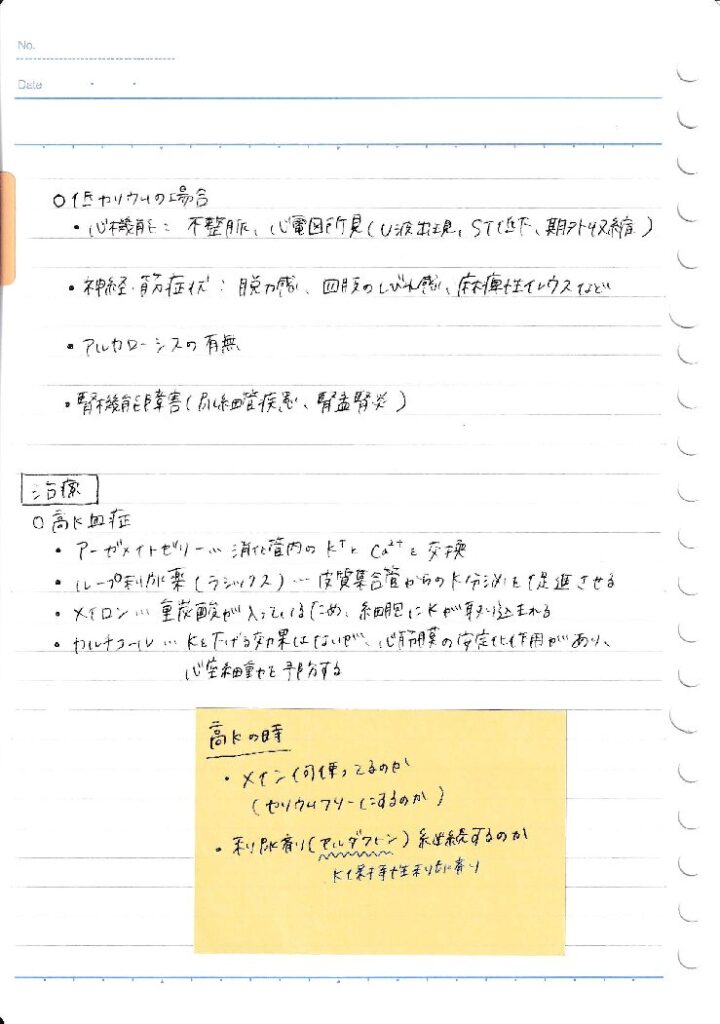 No.
Date
○低カリウムの場合
・心機能：不整脈、心電図所見(U波出現、ST低下、期外収縮)
・神経・筋症状：脱力感、四肢のしびれ感、麻痺性イレウスなど
・アルカローシスの有無
・腎機能障害(尿細管疾患、腎盂腎炎)
治療
○高K血症
・アーガメイトゼリー…消化管内のK⁺とCa²⁺を交換
・ループ利尿薬(ラシックス)…皮質集合管からのK分泌を促進させる
・メイロン…重炭酸が入っているため、細胞にKが取り込まれる
・カルチコール…Kを下げる効果はないが、心筋膜の安定化作用があり、
心室細動を予防する
高Kの時
・メイン何使ってるのか
(カリウムフリーにするのか)
・利尿剤(アルダクトン)継続するのか
K保持性利尿剤